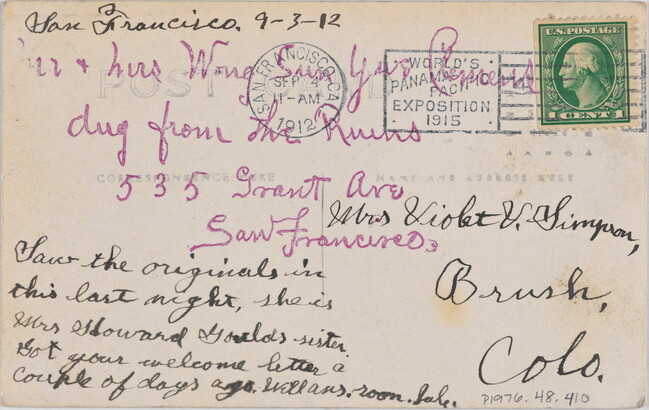 San Francisco. 9-3-12
Mr & Mrs Wong Sun Yue
dug from the Ruins
535 Grant Ave
San Francisco.
POST
SAN FRANCISCO, CAL.
SEP 4
11-AM
1912
WORLD'S
PANAMA-PACIFIC
EXPOSITION
1915
U.S. POSTAGE
1 CENT 1
CORRESPONDENCE HERE
NAME AND ADDRESS HERE
Mrs Violet V. Simpson,
Brush,
Colo.
Saw the originals in
this last night, she is
Mrs Howard Goulds sister.
Got your welcome letter a
couple of days ago. Will ans. soon.
P1976.48.410